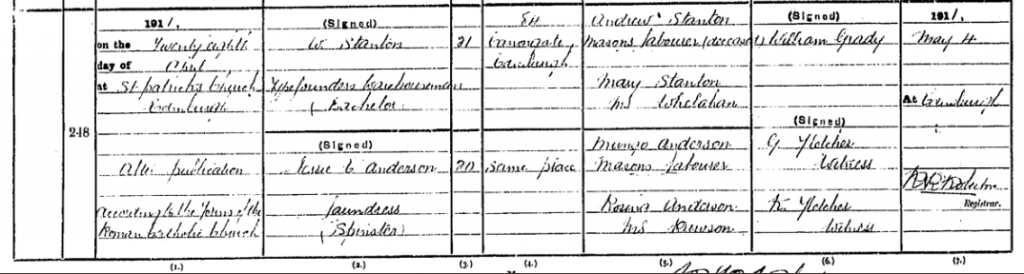 1911,
on the Twenty eighth
day of April
at St Patrick's Church
Edinburgh
After publication
According to the Forms of the
Roman Catholic Church
248
(Signed)
W. Stanton
Typefounders Warehouseman
(Bachelor)
(Signed)
Jessie C Anderson
Laundress
(Spinster)
21
20
Canongate,
Edinburgh
Same place
Andrew Stanton
Masons Labourer (deceased)
Mary Stanton
MS Whelahan
Munro Anderson
Masons Labourer
Anderson
MS Dawson
(Signed)
William Grady
(Signed)
G. Fletcher
Witness
K. Fletcher
Witness
1911,
May 4
At Edinburgh
Registrar.
(1.) (2.) (3.) (4.) (5.) (6.) (7.)